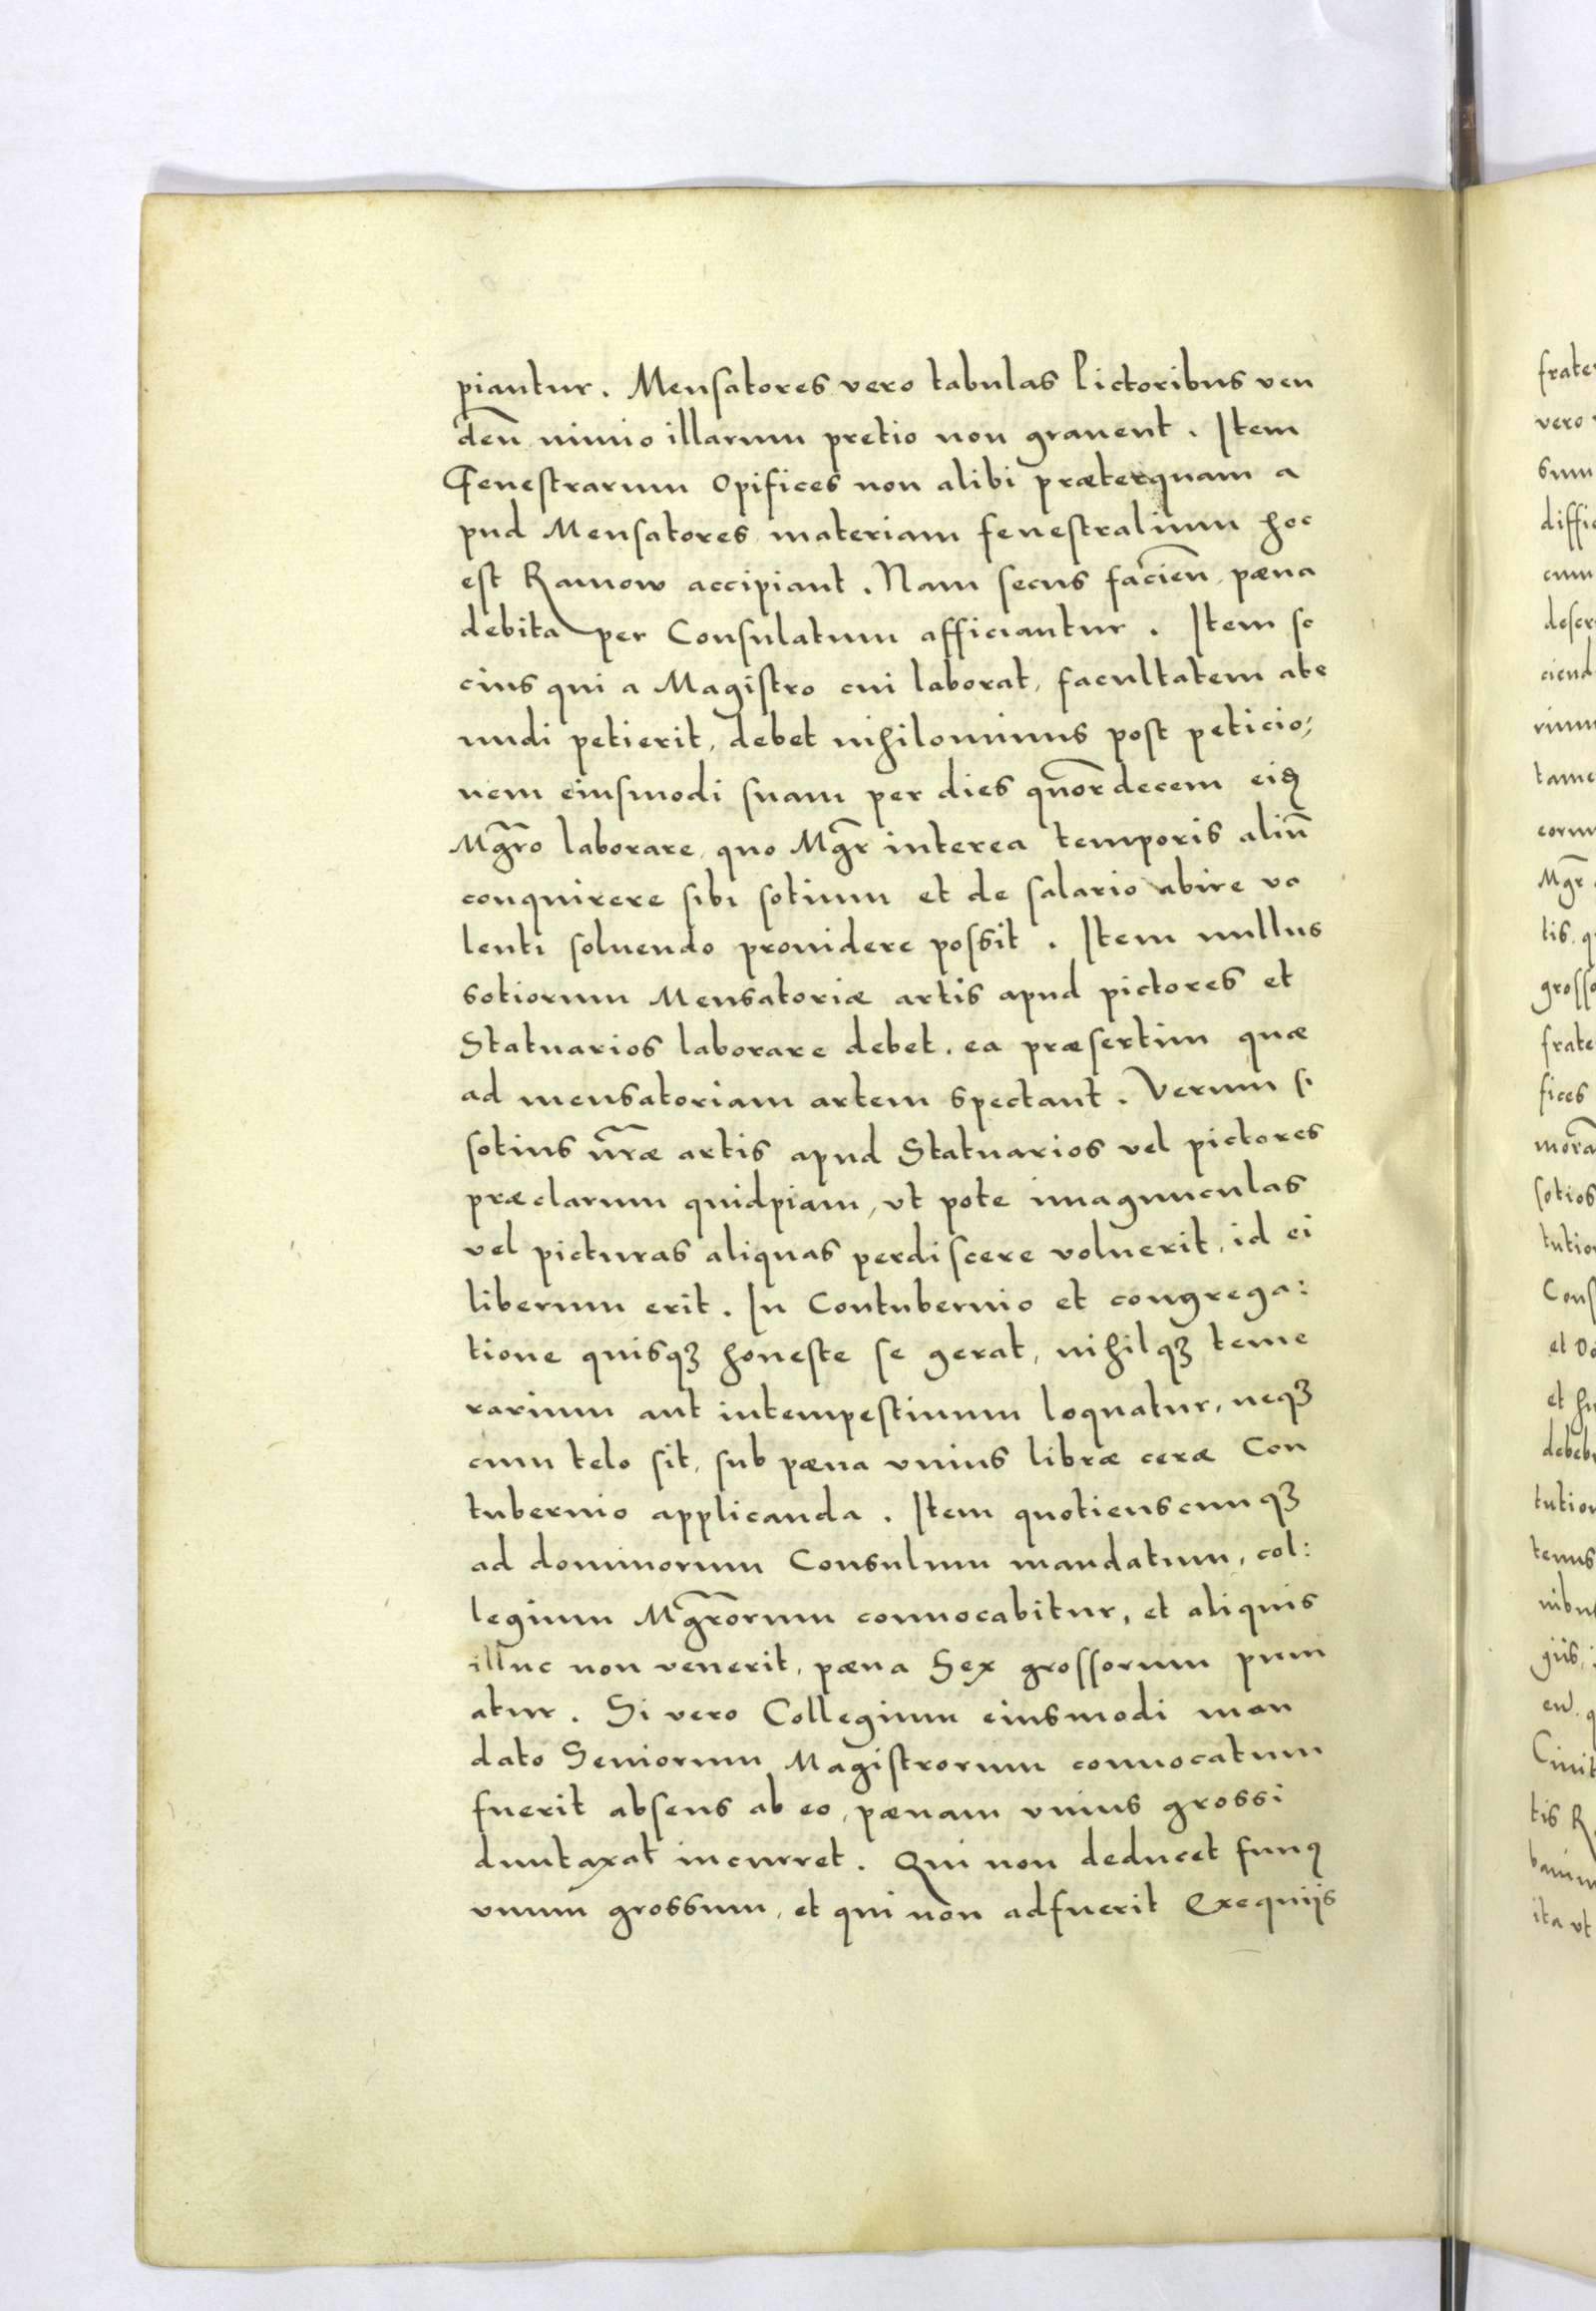 piantur. Mensatores vero tabulas Pictoribus ven
deñ nimio illarum pretio non grauent. Item
Fenestrarum Opifices non alibi præterquam a
pud Mensatores materiam fenestralium hoc
est Ramow accipiant. Nam secus facieñ pæna
debita per Consulatum afficiantur. Item so
cius qui a Magistro cui laborat, facultatem abe
undi petierit, debet nihilominus post peticio;
nem eiusmodi suam per dies quor̃decem eiꝰ
Mgr̃o laborare, quo Mgr̃ interea temporis aliũ
conquirere sibi sotium et de salario abire vo
lenti soluendo prouidere possit. Item nullus
sotiorum Mensatoriæ artis apud pictores et
Statuarios laborare debet. ea præsertim quæ
ad mensatoriam artem spectant. Verum si
sotius nr̃æ artis apud Statuarios vel pictores
præclarum quidpiam, vt pote imagunculas
vel picturas aliquas perdiscere voluerit, id ei
liberum erit. In Contubernio et congrega:
tione quisqꝫ honeste se gerat, nihilqꝫ teme
rarium aut intempestiuum loquatur, neqꝫ
cum telo sit, sub pæna vnius libræ ceræ Con
tubernio applicanda. Item quotienscunqꝫ
ad dominorum Consulum mandatum, col:
legium Mgr̃orum conuocabitur, et aliquis
illuc non venerit, pæna Sex grossorum puni
atur. Si vero Collegium eiusmodi man
dato Seniorum Magistrorum conuocatum
fuerit absens ab eo, pænam vnius grossi
duntaxat incurret. Qui non deducet funꝰ
vnum grossum, et qui non adfuerit Exequijs